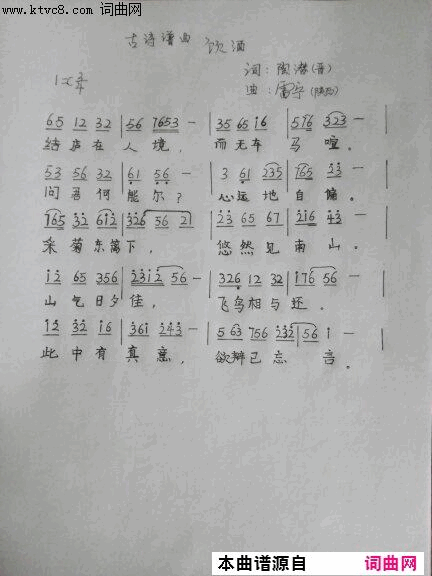 www.ktvc8.com 词曲网
古诗谱曲 饮酒
词：陶潜(晋)
1=C 3/4
曲：雷宇(陕西)
65 12 32 | 56 1653 — | 35 65 16 | 516 323 — |
结庐在人境，而无车马喧。
53 56 32 | 61 56 — | 3 61 235 | 765 33 |
问君何能尔？心远地自偏。
165 32 612 | 326 56 2 | 23 65 67 | 216 43 — |
采菊东篱下，悠然见南山。
12 65 356 | 2312 56 — | 326 12 32 | 176 56 — |
山气日夕佳，飞鸟相与还。
12 32 16 | 361 243 — | 5 63 756 232 | 56 1 — |
此中有真意，欲辩已忘言。
本曲谱源自 词曲网